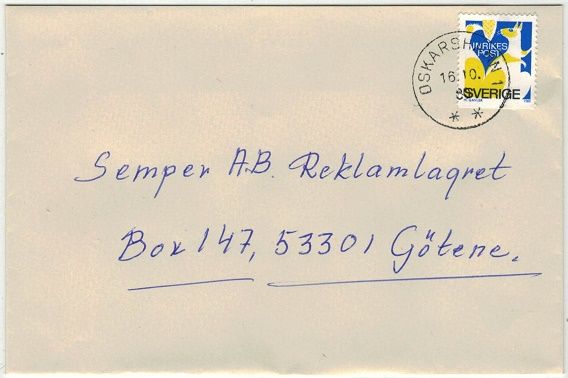 INRIKES
POST
OSKARSHAMN 1
16.10.
80
SVERIGE
Semper A.B. Reklamlagret
Box 147, 53301 Götene.